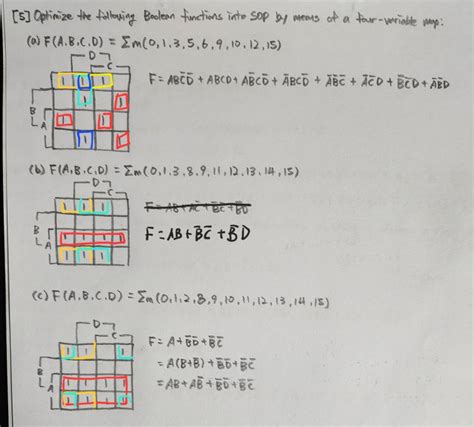 [5] Optimize the following Boolean functions into SOP by means of a four-variable map:
(a) F(A,B,C,D) = Σm(0,1,3,5,6,9,10,12,15)
D
C
F = ABC̄D̄ + ABCD + AB̄CD̄ + ĀBCD̄ + ĀB̄C̄ + ĀC̄D + B̄C̄D + ĀB̄D
1 1 1
1 1
B
A
1 1
1 1
(b) F(A,B,C,D) = Σm(0,1,3,8,9,11,12,13,14,15)
D
C
1 1 1
F = AB + B̄C̄ + B̄D
B
A
1 1 1 1
1 1 1
(c) F(A,B,C,D) = Σm(0,1,2,8,9,10,11,12,13,14,15)
D
C
F = A + B̄D̄ + B̄C̄
1 1 1
= A(B+B̄) + B̄D̄ + B̄C̄
B
= AB + AB̄ + B̄D̄ + B̄C̄
A
1 1 1 1
1 1 1 1